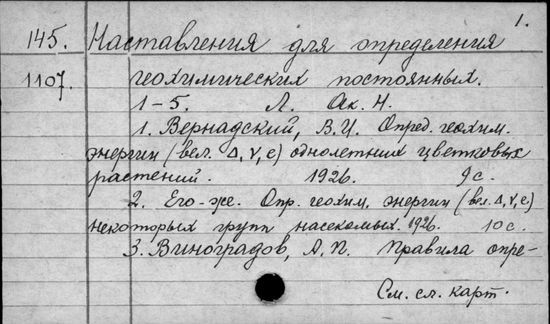 1.
145. Наставления для определения
1107. геохимических постоянных.
1-5. Л. Ак. Н.
1. Вернадский, В.И. Опред. геохим.
энергии (вел. Δ, V, e) однолетних цветковых
растений. 1926. 9 с.
2. Его-же. Опр. геохим. энергии (вел. Δ, V, e)
некоторых групп насекомых. 1926. 10 с.
3. Виноградов, А.П. Правила опре-
См. сл. карт.